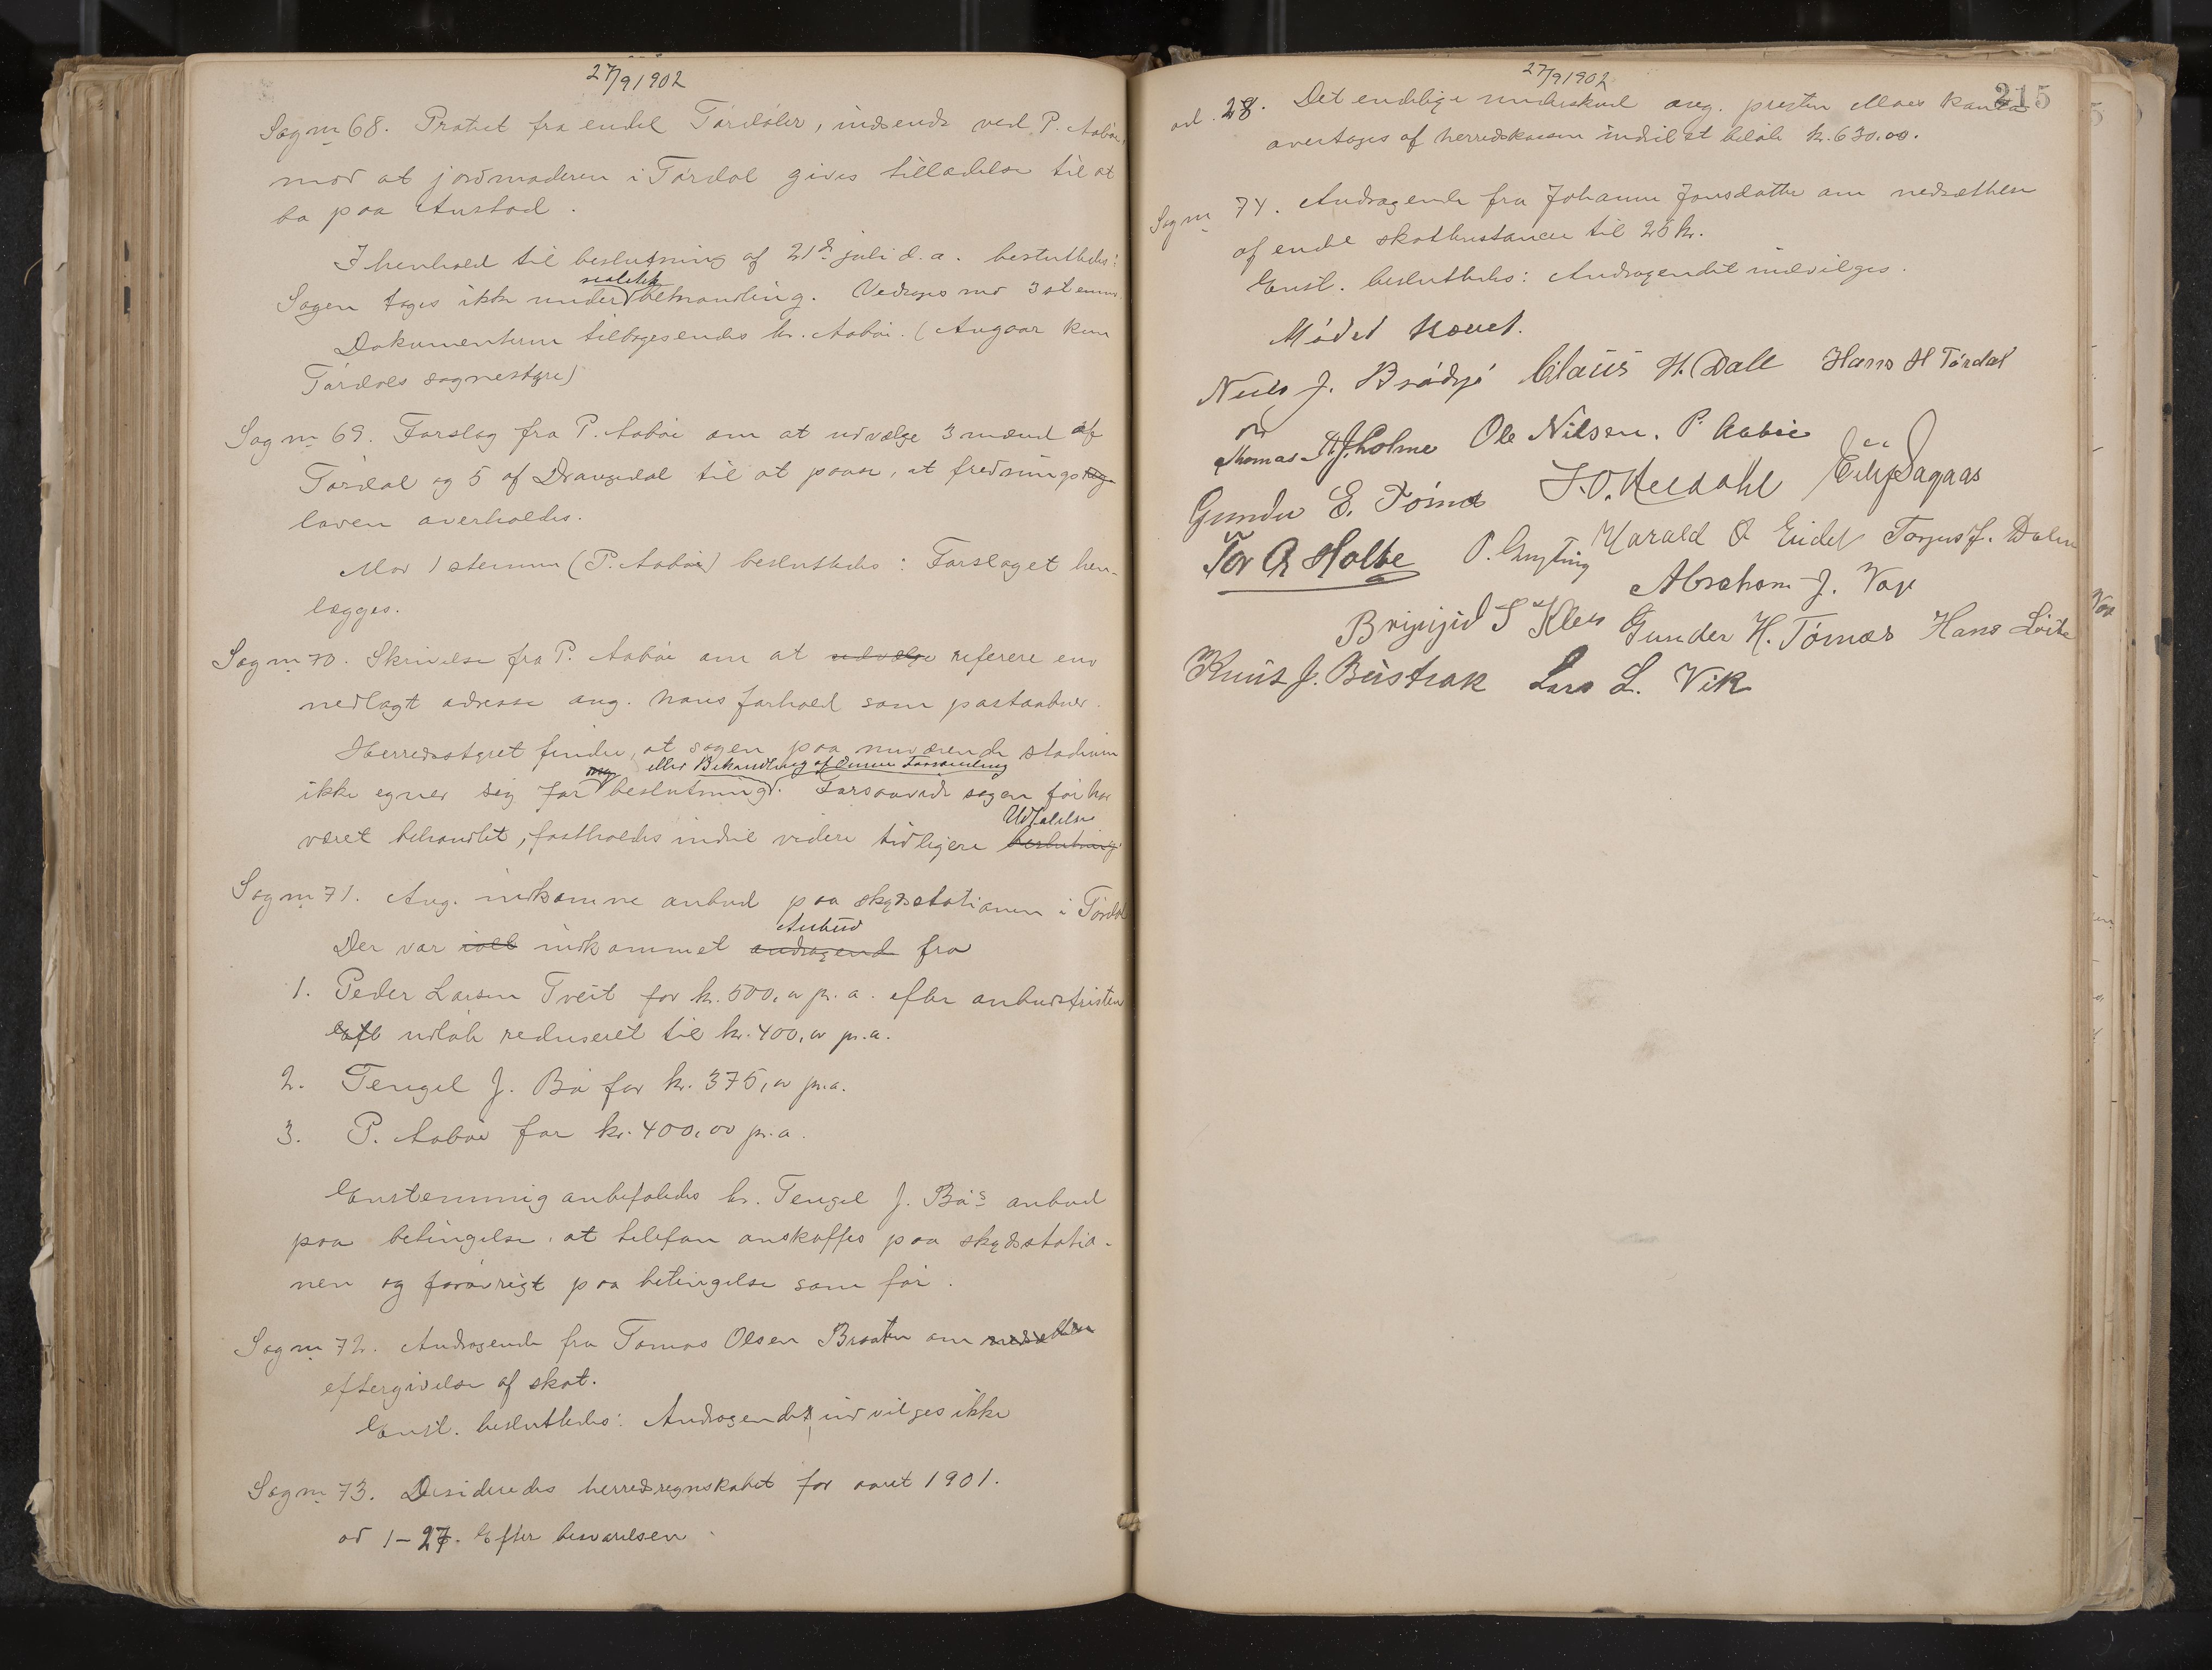 27/9 1902
Sag nr 68. Protest fra endel Tørdøler, indsendt ved P. Aabøe,
mod at jordmoderen i Tørdal gives tilladelse til at
bo paa Austad.
I henhold til beslutning af 21de juli d.a. besluttedes:
realitets
Sagen tages ikke under behandling. Vedtages mod 3 stemmer.
Dokumenterne tilbagesendes hr. Aabøe. (Angaar kun
Tørdals sognestyre)
Sag nr 69. Forslag fra P. Aabøe om at udvælge 3 mænd af
Tørdal og 5 af Drangedal til at paase, at frednings
loven overholdes.
Mod 1 stemme (P. Aabøe) besluttedes: Forslaget hen-
lægges.
Sag nr 70. Skrivelse fra P. Aabøe om at udvælge referere en
nedlagt adresse ang. hans forhold som postaabner.
Herredsstyret finder, at sagen paa nuværende stadium
eller Behandling af denne Forsamling
ikke egner sig for beslutning. Forsaavidt sagen før har
Udtalelse
været behandlet, fastholdes indtil videre tidligere beslutning
Sag nr 71. Ang. indkomne anbud paa skydsstationen i Tørdal
Anbud
Der var indkommet andragende fra
1. Peder Larsen Tveit for kr. 500,00 pr. a. efter anbudsfristen
udløb reduseret til kr. 400,00 pr. a.
2. Tengel J. Bø for kr. 375,00 pr. a.
3. P. Aabøe for kr. 400,00 pr. a.
Enstemmig anbefaledes hr. Tengel J. Bøs anbud
paa betingelse, at telefon anskaffes paa skydsstatio-
nen og forøvrigt paa betingelse som før.
Sag nr 72. Andragende fra Tomas Olsen Braaten om nedsættelse
eftergivelse af skat.
Enst. besluttedes: Andragendet indvilges ikke
Sag nr 73. Desideredes herredsregnskabet for aaret 1901.
ad 1-27. Efter besvarelsen
27/9 1902
215
ad. 28. Det endelige underskud ang. presten Moes konto
overtages af herredskassen indtil et beløb kr. 630,00.
Sag nr 74. Andragende fra Johanne Jonsdatter om nedsættelse
af endel skatterestancer til 25 kr.
Enst. besluttedes: Andragendet indvilges.
Mødet hævet.
Niels J. Brødsjø Claus H. Dale Hans H Tørdal
Thomas Holme Ole Nilsen. P. Aabøe
Gunder E. Tømæs J. O. Neerdahl Eilif Dagaas
Tor A Holte O. Gryting Harald O Eidet Torjus J. Dalen
Abraham J. Voje
Brynjul S Kleiv Gunder H. Tømæs Hans Løite
Knut J. Bustrak Lars L. Vik